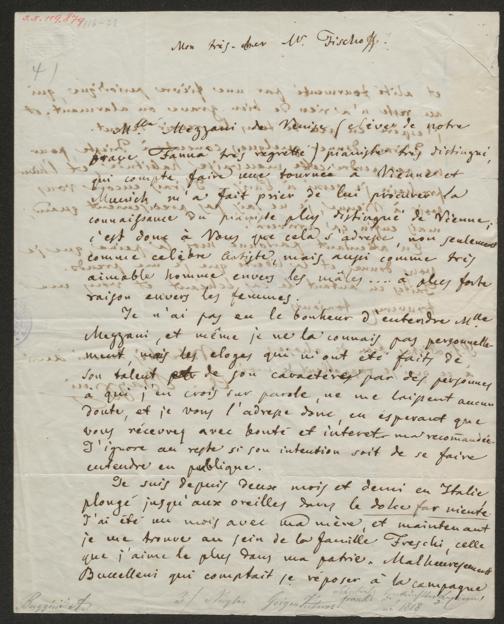 4)
Mon très-cher Mr. Fischoff!
Mlle Mezzani de Venise (éléve de notre
brave Fanna très regretté) pianiste très distingué,
qui compte faire une tournée à Vienne et
Munich m'a fait prier de lui procurer la
connaissance du pianiste plus distingué de Vienne,
c'est donc à Vous que cela s'adresse non seulement
comme celèbre Artiste, mais aussi comme très
aimable homme envers les mâles ... a plus forte
raison envers les femmes.
Je n'ai pas eu le bonheur d'entendre Mlle
Mezzani, et même je ne la connais pas personnelle-
ment mais les eloges qui m'ont été faits de
son talent et de son caractère par des personnes
à qui j'en crois sur parole, ne me laissent aucun
doute, et je vous l'adresse donc, en esperant que
vous récevrez avec bonté et interet ma recomandée.
J'ignore au reste si son intention soit de se faire
entendre en publique.
Je suis depuis deux mois et demi en Italie,
plongé jusqu'aux oreilles dans le dolce far niente
J'ai été un mois avec ma mère, et maintenant
je me trouve au sein de la famille Freschi, celle
que j'aime le plus dans ma patrie. Malheureusement
Buccelleni qui comptait se reposer à la campagne